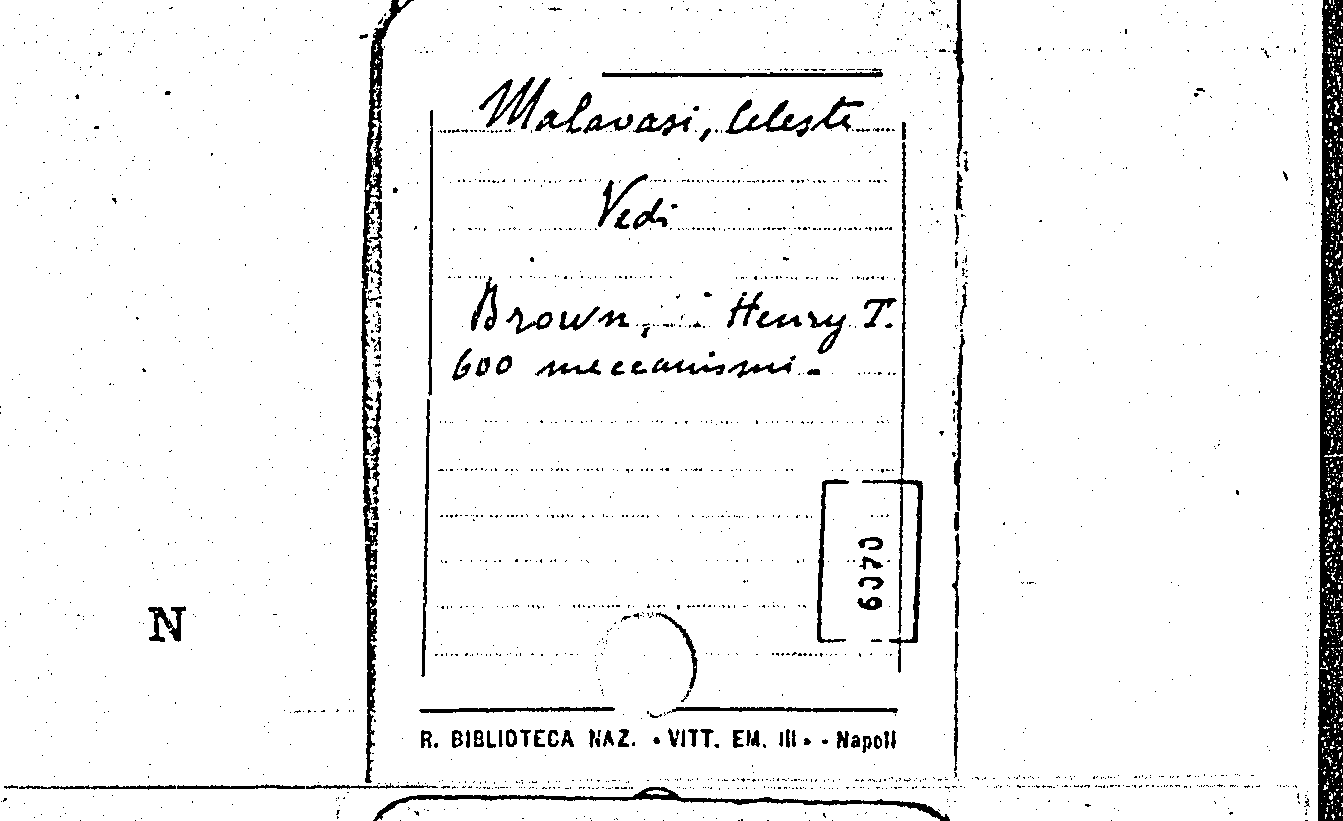 Malavasi, Celeste
Vedi
Brown, Henry T.
600 meccanismi.
6070
N
R. BIBLIOTECA NAZ. • VITT. EM. III • - Napoli